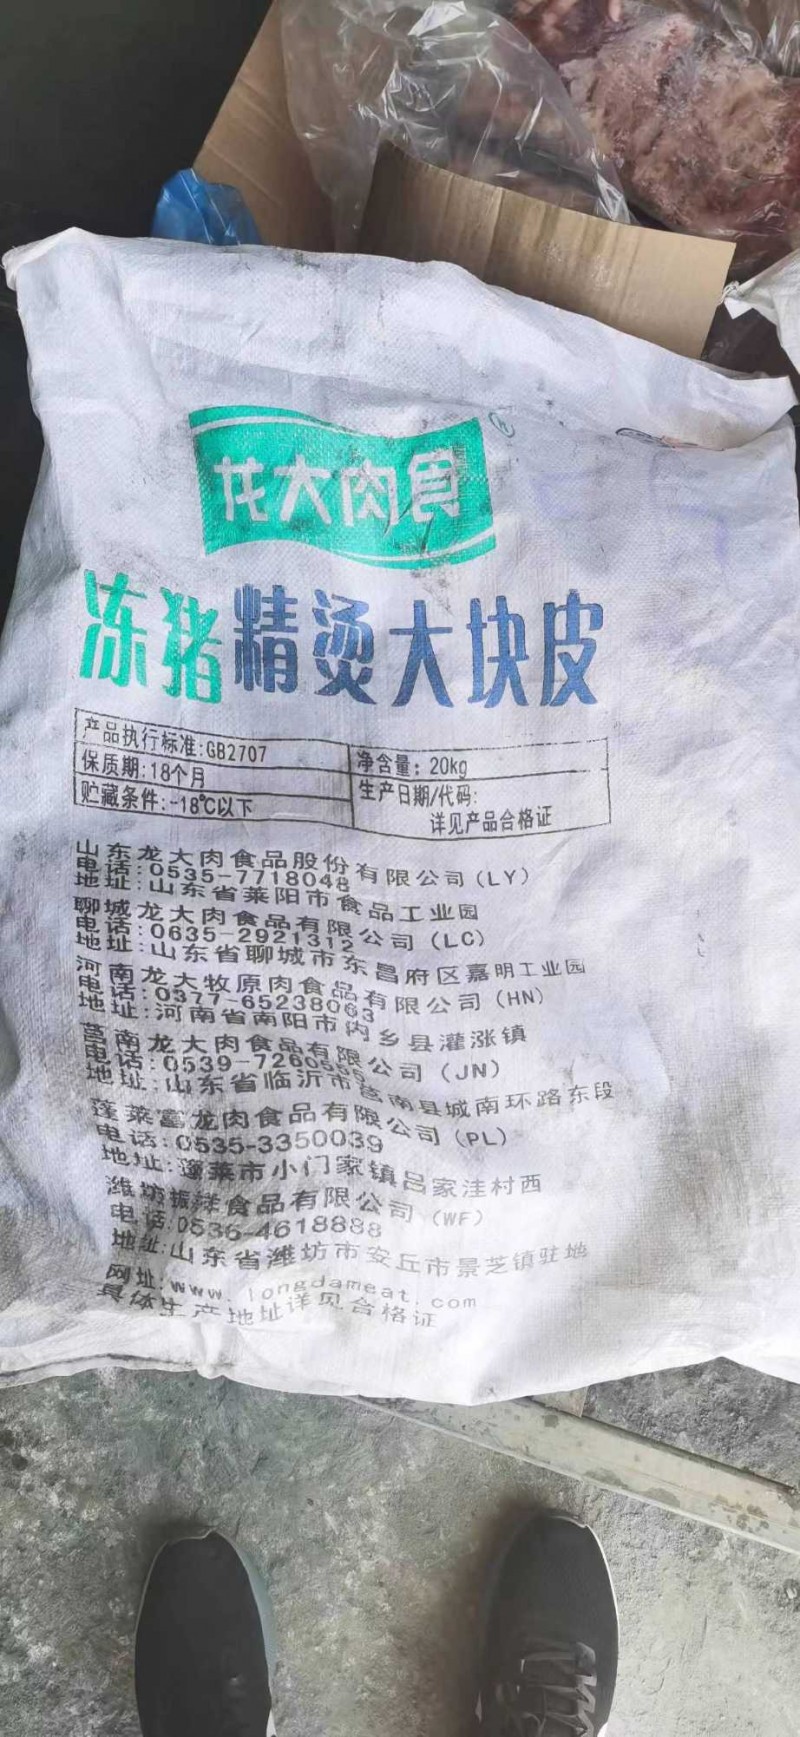 龙大肉食
冻猪精烫大块皮
产品执行标准:GB2707
净含量: 20kg
保质期:18个月
生产日期/代码:
贮藏条件:-18℃以下
详见产品合格证
山东龙大肉食品股份有限公司(LY)
电话:0535-7718048
地址:山东省莱阳市食品工业园
聊城龙大肉食品有限公司(LC)
电话:0635-2921312
地址:山东省聊城市东昌府区嘉明工业园
河南龙大牧原肉食品有限公司(HN)
电话:0377-65238063
地址:河南省南阳市内乡县灌涨镇
莒南龙大肉食品有限公司(JN)
电话:0539-7260555
地址:山东省临沂市莒南县城南环路东段
蓬莱富龙肉食品有限公司(PL)
电话:0535-3350039
地址:蓬莱市小门家镇吕家洼村西
潍坊振祥食品有限公司(WF)
电话:0536-4618888
地址:山东省潍坊市安丘市景芝镇驻地
网址:www.longdameat.com
具体生产地址详见合格证